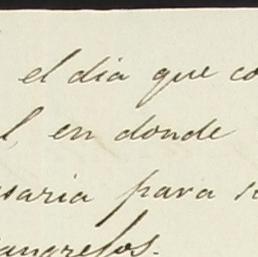 el dia que co
l, en donde
saria para s
angresos.